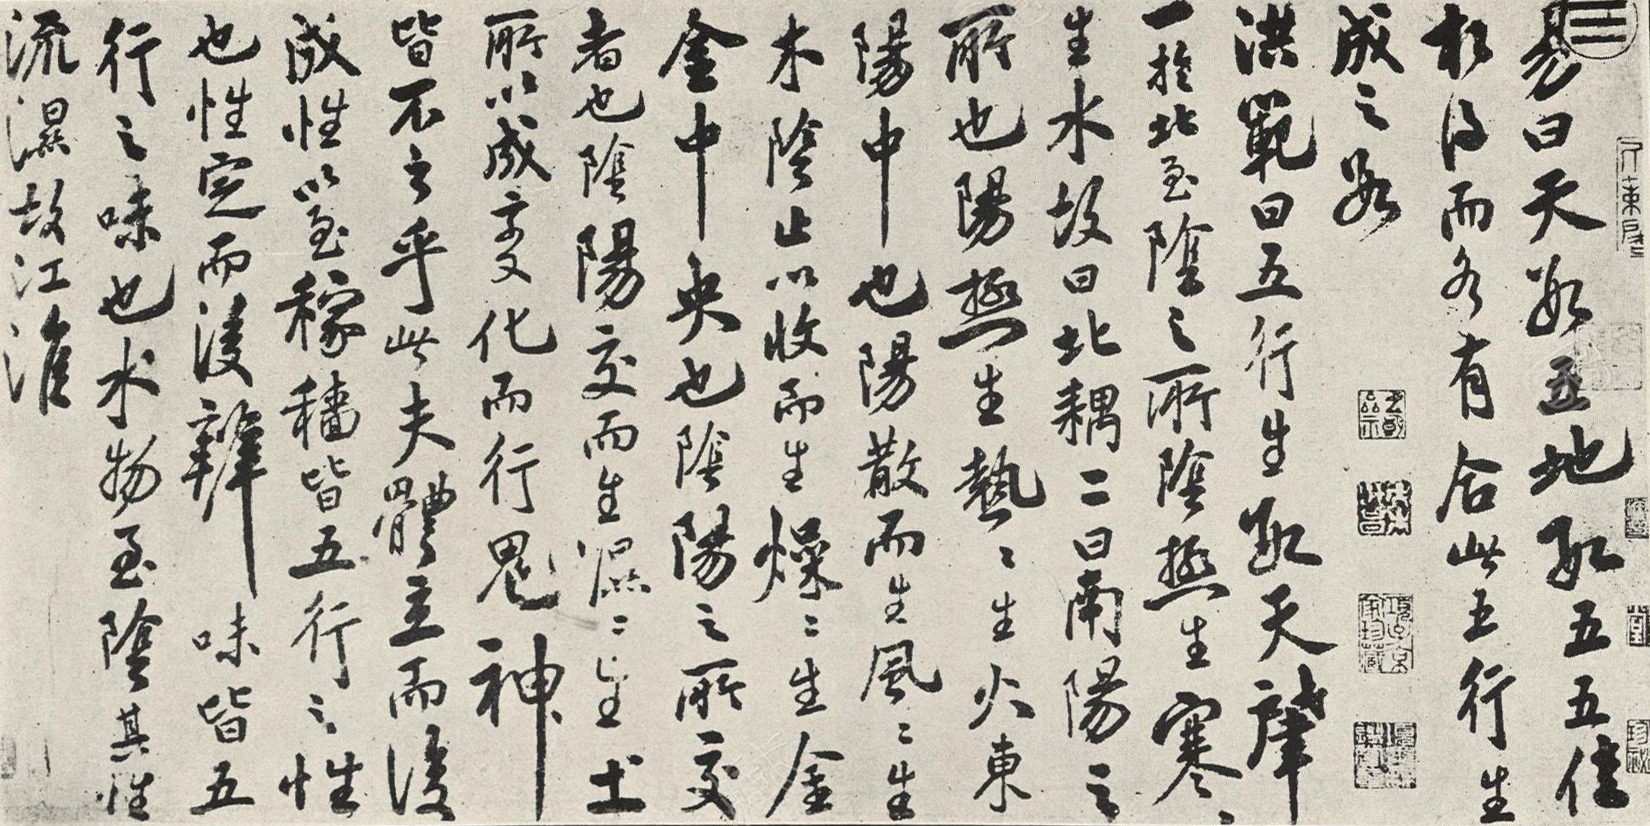 易曰天數五地數五五位
相得而各有合此五行生
成之數
洪範曰五行生數天肇
一於北至陰之所陰極生寒〻
生水故曰北耦二曰南陽之
所也陽極生熱〻生火東
陽中也陽散而生風〻生
木陰止以收而生燥〻生金
金中央也陰陽之所交
者也陰陽交而生濕〻生土
所以成變化而行鬼神
皆不云乎此夫體立而後
成性以至稼穡皆五行之性
也性定而後辨味皆五
行之味也水物至陰其性
流濕故江淮